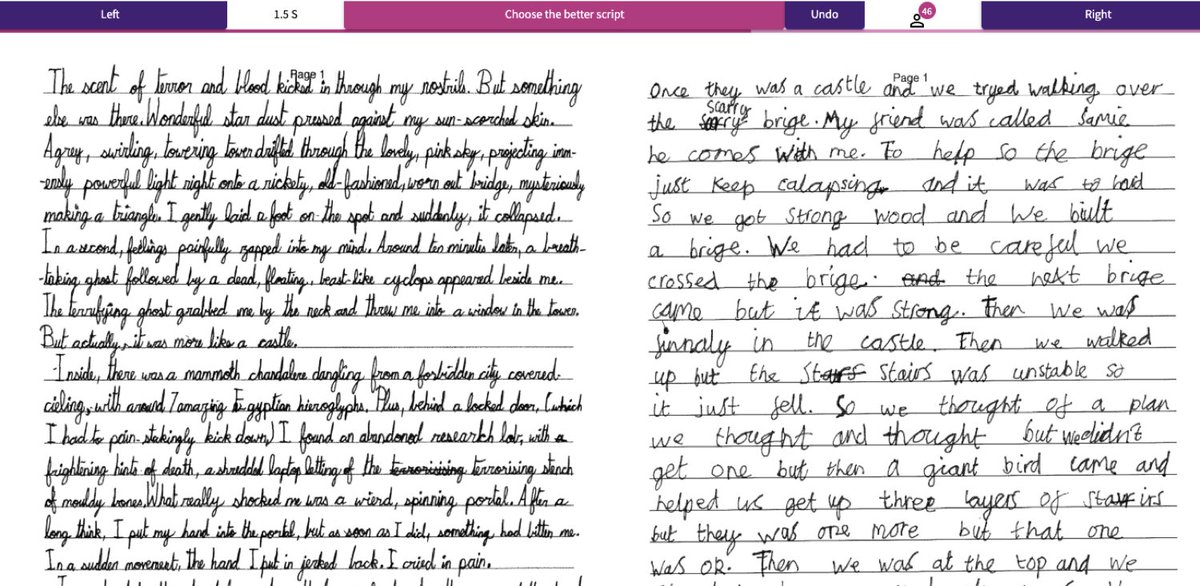 Left
1.5 S
Choose the better script
Undo
46
Right
Page 1
The scent of terror and blood kicked in through my nostrils. But something
else was there. Wonderful star dust pressed against my sun-scorched skin.
A grey, swirling, towering tower drifted through the lovely, pink sky, projecting imm-
-ensly powerful light right onto a rickety, old-fashioned, worn out bridge, mysteriously
making a triangle. I gently laid a foot on the spot and suddenly, it collapsed.
In a second, feelings painfully zapped into my mind. Around ten minutes later, a breath-
-taking ghost followed by a dead, floating, beast-like cyclops appeared beside me.
The terrufying ghost grabbed me by the neck and threw me into a window in the tower.
But actually, it was more like a castle.
Inside, there was a mammoth chandalere dangling from a forbidden city covered
cieling, with around 7 amazing Egyptian hieroglyphs. Plus, behind a locked door, (which
I had to pain-stakingly kick down,) I found an abandoned research lab, with a
frightening hints of death, a shredded laptop letting of the terrorising terrorising stench
of mouldy bones. What really shocked me was a wierd, spinning portal. After a
long think, I put my hand into the portal, but as soon as I did, something had bitten me.
In a sudden movement, the hand I put in jerked back. I cried in pain.
Page 1
Once they was a castle and we tryed walking over
the scarry brige. My friend was called Samie
he comes with me. To help so the brige
just keep calapsing and it was to hard
So we got strong wood and We biult
a brige. We had to be careful we
crossed the brige. and the next brige
came but it was strong. Then we was
finnaly in the castle. Then we walked
up but the stairs was unstable so
it just fell. So we thought of a plan
we thought and thought but we didn't
get one but then a giant bird came and
helped us get up three layers of stairs
but they was one more but that one
was OR. Then we was at the top and we